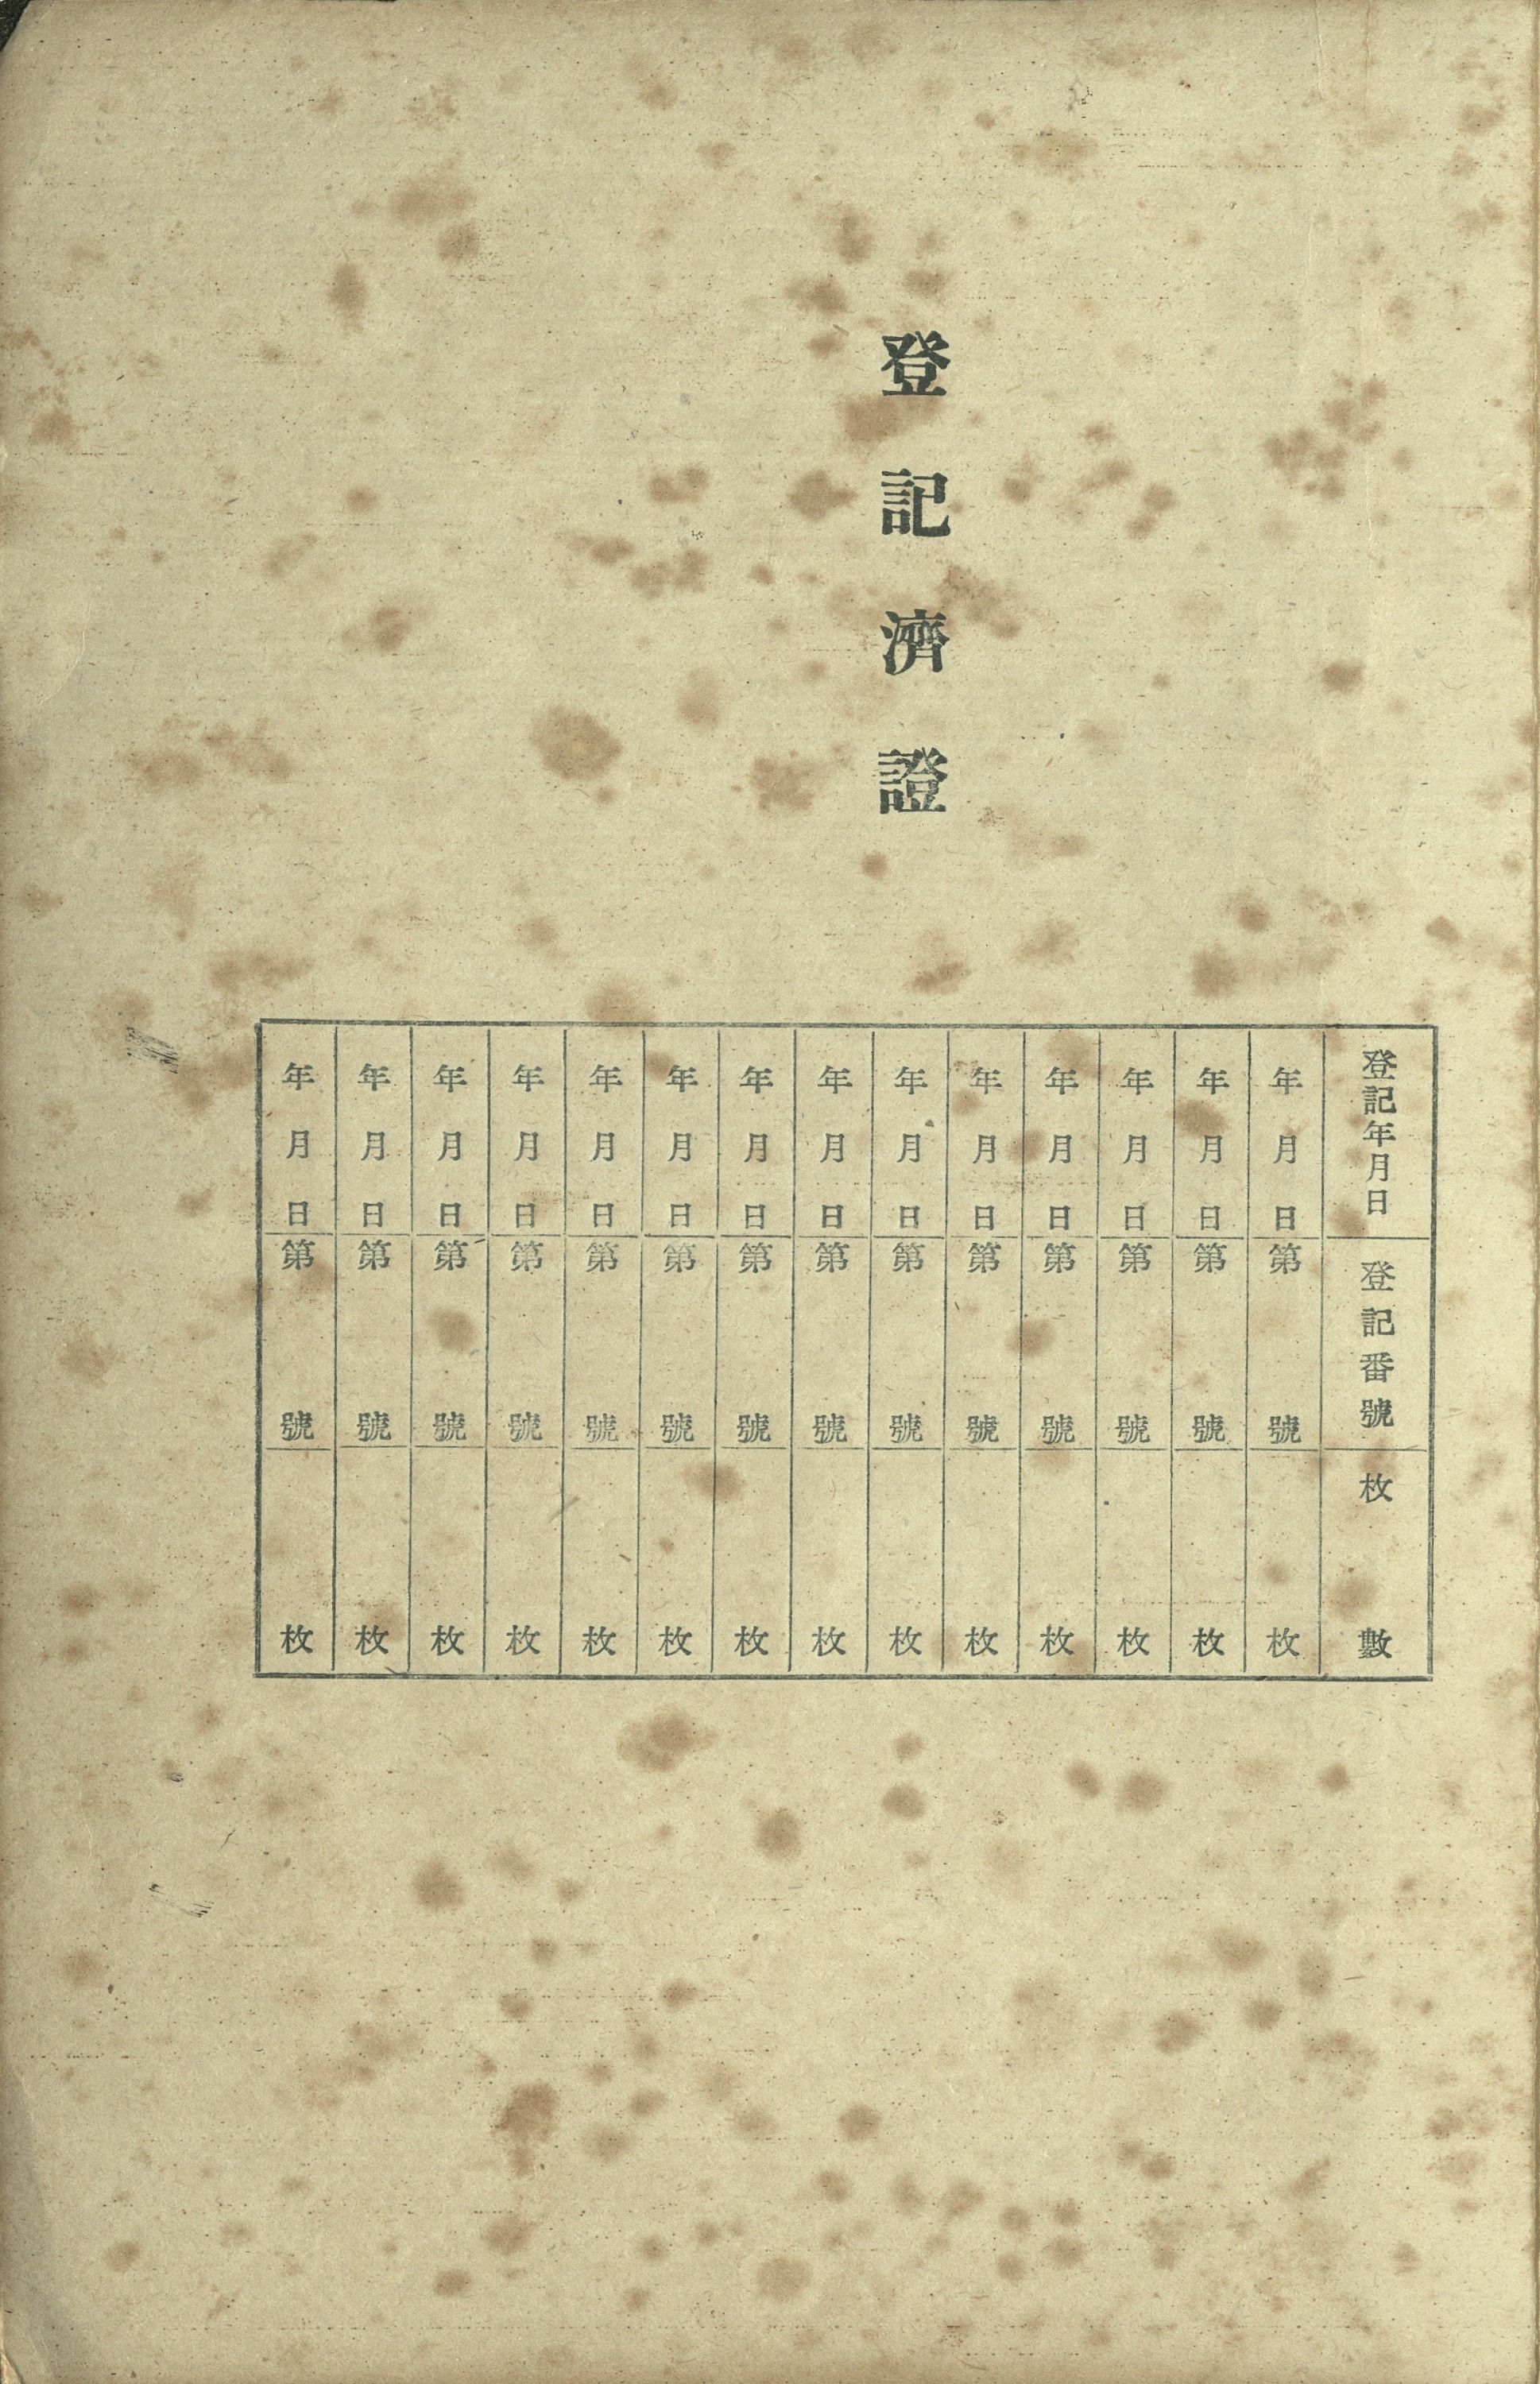 登記濟證
登記年月日 登記番號 枚數
年月日 第號 枚
年月日 第號 枚
年月日 第號 枚
年月日 第號 枚
年月日 第號 枚
年月日 第號 枚
年月日 第號 枚
年月日 第號 枚
年月日 第號 枚
年月日 第號 枚
年月日 第號 枚
年月日 第號 枚
年月日 第號 枚
年月日 第號 枚